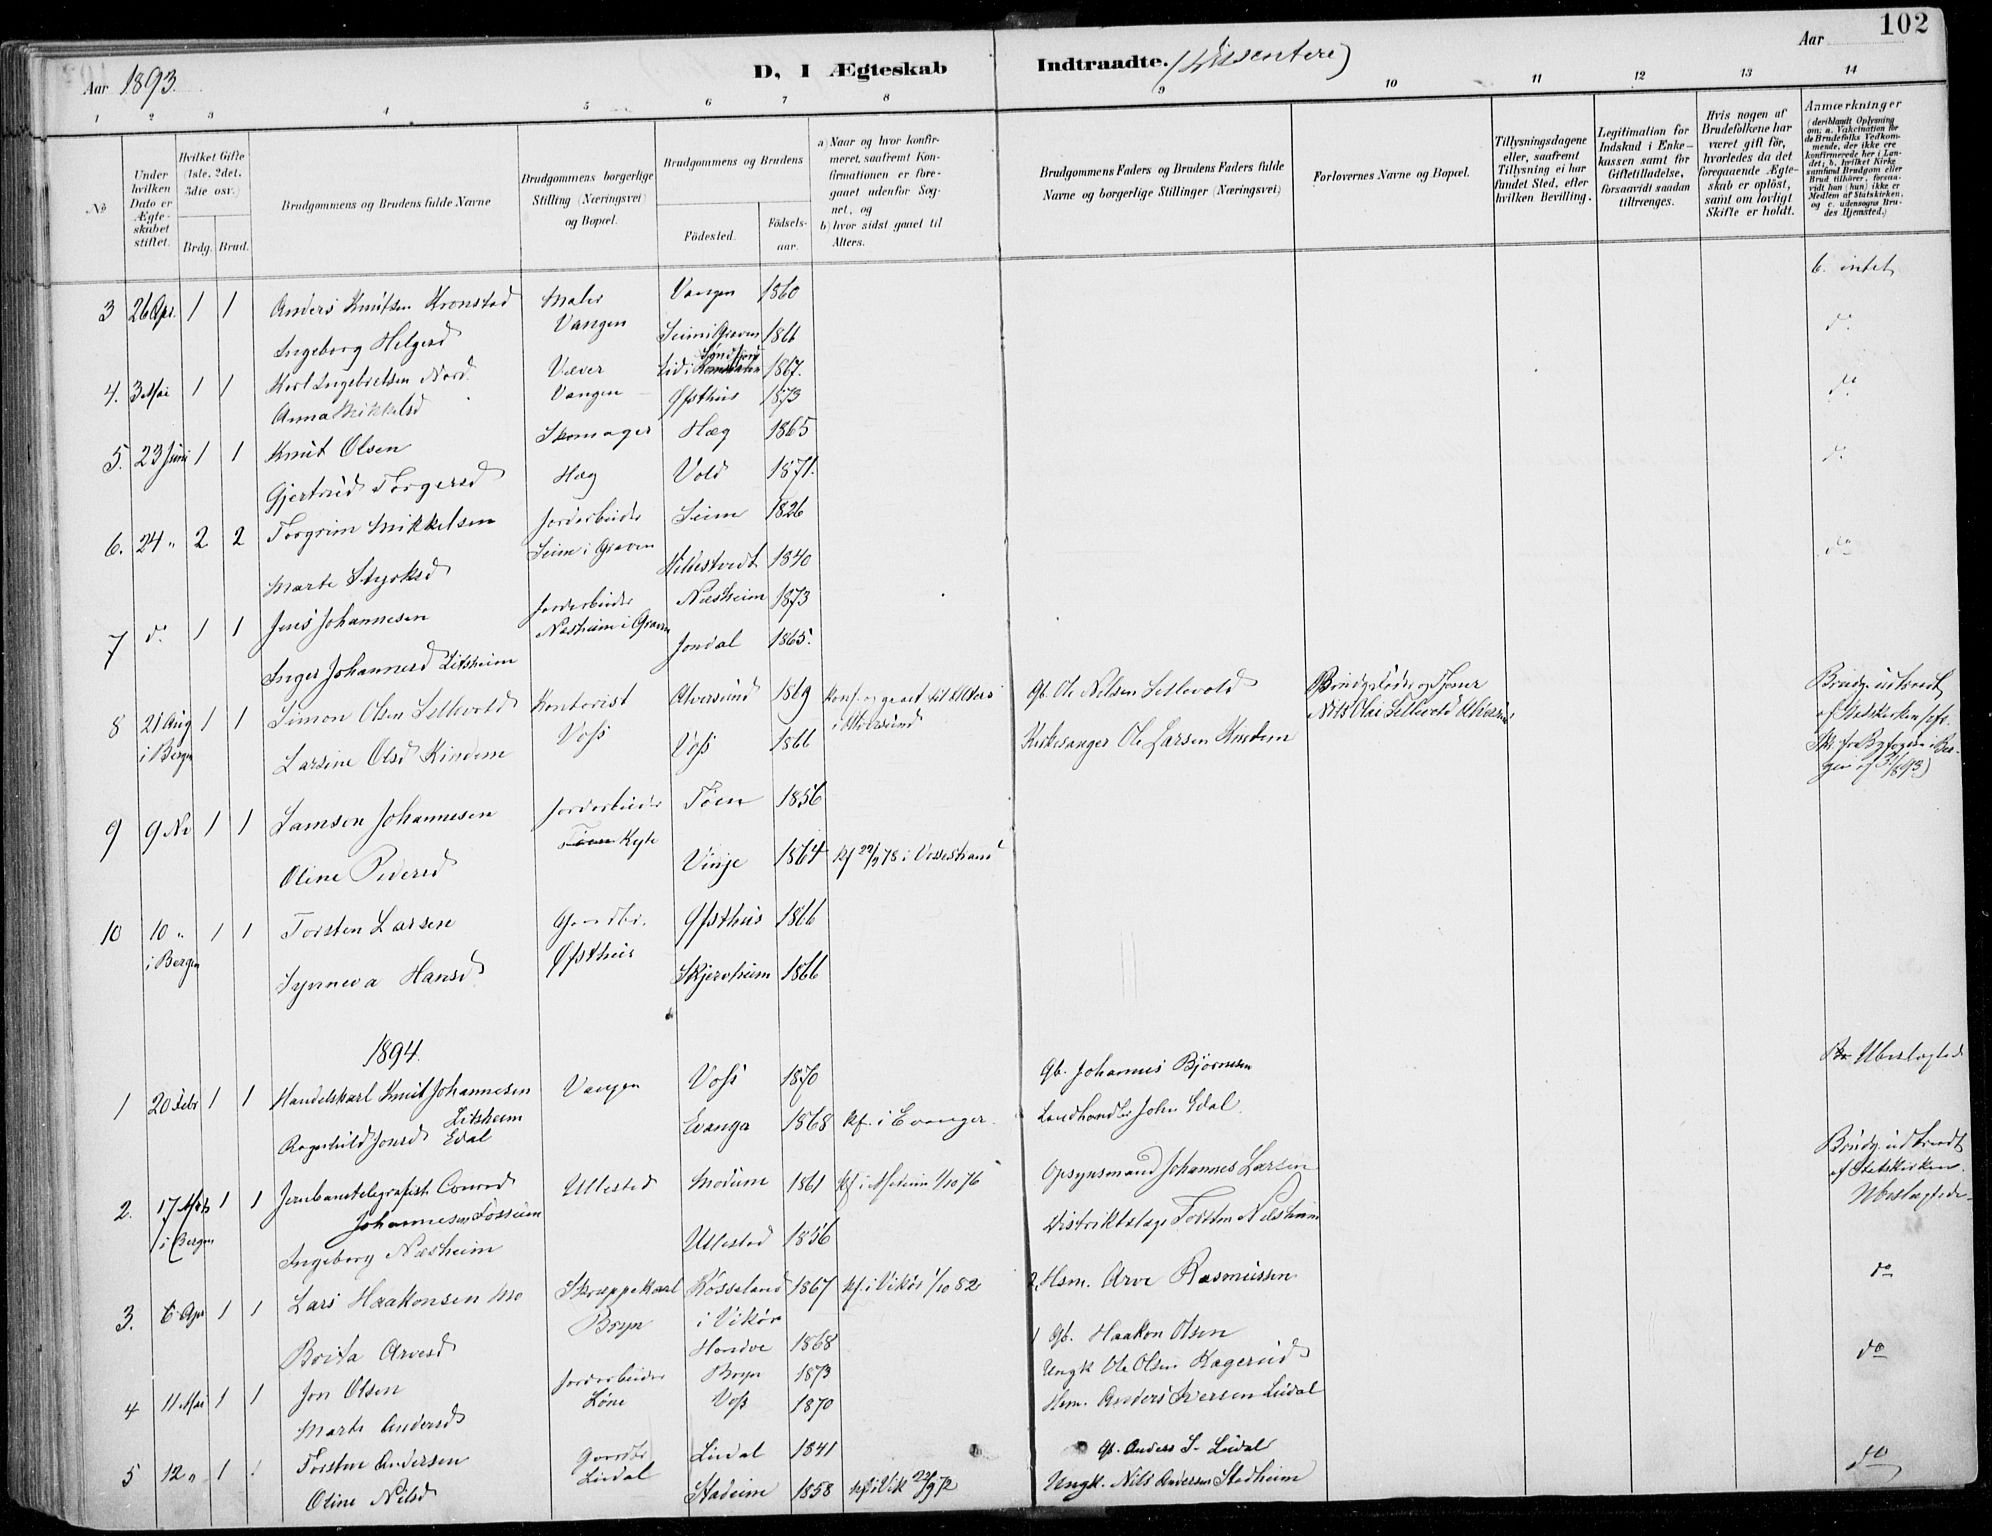 102
Aar 1893.
D, I Ægteskab Indtraadte. (Dissentere)
Aar
1 2 3 4 5 6 7 8 9 10 11 12 13 14
No
Under hvilken Dato er Ægteskabet stiftet.
Hvilket Gifte (1ste, 2det, 3die osv.)
Brdg. Brud.
Brudgommens og Brudens fulde Navne
Brudgommens borgerlige Stilling (Næringsvei) og Bopæl.
Brudgommens og Brudens
Fødested. Fødselsaar.
a) Naar og hvor konfirmeret, saafremt Konfirmationen er foregaaet udenfor Sognet, og
b) hvor sidst gaaet til Alters.
Brudgommens Faders og Brudens Faders fulde Navne og borgerlige Stillinger (Næringsvei)
Forlovernes Navne og Bopæl.
Tillysningsdagene eller, saafremt Tillysning ei har fundet Sted, efter hvilken Bevilling.
Legitimation for Indskud i Enkekassen samt for Giftetilladelse, forsaavidt saadan tiltrænges.
Hvis nogen af Brudefolkene har været gift før, hvorledes da det foregaaende Ægteskab er opløst, samt om lovligt Skifte er holdt.
Anmærkninger (deriblandt Oplysning om: a. Vakcination for de Brudefolks Vedkommende, der ikke ere konfirmerede her i Landet; b. hvilket Kirkesamfund Brudgom eller Brud tilhører, forsaavidt han (hun) ikke er Medlem af Statskirken, og c. udensogns Brudes Hjemsted.)
3 26 Apr. 1 1 Anders Knutsen Kronstad Maler Vangen 1860 b. intet
Ingeborg Helgesd Vangen Seim i Graven 1866 do
4. 3 Mai 1 1 Karl Ingebrietsen Nord Væver 1867.
Anna Mikkelsd Vangen Øfsthus 1873 do
5. 23 Juni 1 1 Knut Olsen Skomager Hæg 1865
Gjertrud Torgersd Hæg Vold 1871. do
6. 24 " 2 2 Torgrim Mikkelsen Jordarbeider Seim 1826
Marte Styrksd Seim i Graven 1840 do
7 do 1 1 Jens Johannesen Jordarbeider Næsheim 1873
Inger Johannesd Litsheim Næsheim i Graven Jondal 1865.
8 21 Aug 1 1 Simon Olsen Sellevold Kontorist Alversund 1869 Konf. og gaaet til Alters i Alversund Gb. Ole Nilsen Sellevold Brudg. udtraadt af Statskirken
i Bergen Larsine Olsd Kindem Voss Voss 1866 Kirkesanger Ole Larsen Kindem
9 9 Nv 1 1 Samson Johannesen Jordarbeider Tøen 1856
Oline Pedersd Kyte Vinje 1864 Kf 22/9 78 i Vossestrand
10 10 " 1 1 Torsten Larsen Gaardbr. Øfsthus 1866
i Bergen Synneva Hansd Øfsthus Skjervheim 1866
1894.
1 20 Febr 1 1 Handelskarl Knut Johannesen Litsheim Vangen Voss 1870 Gb. Johannes Bjørnsen Ubeslægtede
Ragnhild Jonsd Edal Evanger 1868 Kf. i Evanger. Landhandler John Edal.
2. 17 Mrts 1 1 Jernbanetelegrafist Conrad Johannesen Fossum Ullestad Modum 1861 Kf. i 1/10 76 Opsynsmand Johannes Larsen Brudg. udtraadt af Statskirken. Ubeslægtede
i Bergen Ingeborg Næsheim Ullestad 1856 Distriktslæge Torsten Nilsheim
3. 6 Apr 1 1 Lars Haakonsen Mo Skreppekarl Røsseland i Vikør 1867 kf. i Vikør 1/10 82 2 Hsm. Arve Rasmussen do
Brita Arvesd Bryn Hondve 1868 1 Gb. Haakon Olsen
4 11 Mai 1 1 Jon Olsen Jordarbeider Bryn 1873 Ungk Ole Olsen Ragerud do
Marta Andersd Løne Voss 1870 Hsm. Anders Iversen Lirdal
5 12 " 1 1 Torsten Andersen Gaardbr Lirdal 1841 Gb. Anders S. Lirdal
Oline Nilsd Lirdal Stadeim 1858 kf. i Vik 22/9 72 Ungk. Nils Andersen Stedheim do